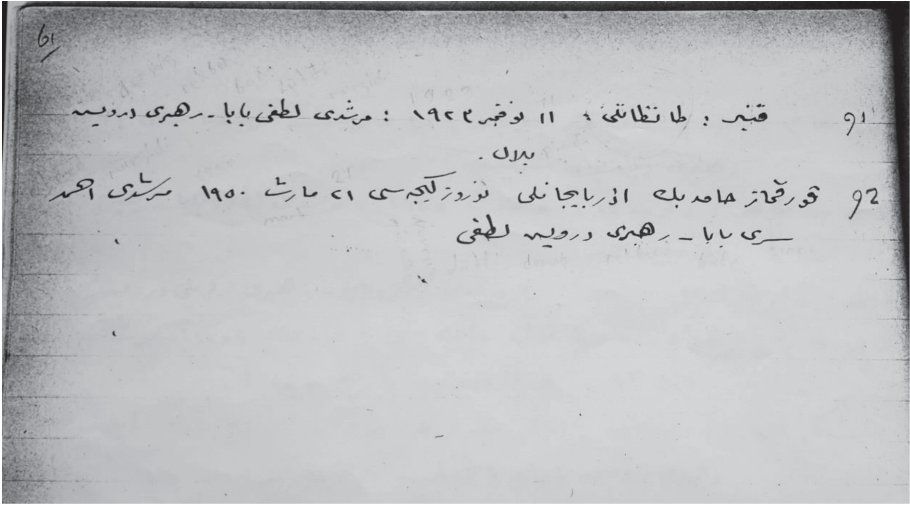 61
91 قنبر : طانطاتلى : ١١ نوفمبر ١٩٢٣ : مرشدى لطفى بابا ـ رهبرى درويش
بلال .
92 قورقماز حامد بك اذربايجانلى نوروز كيجه سى ٢١ مارث ١٩٥٠ مرشدى احمد
سرى بابا ـ رهبرى درويش لطفى